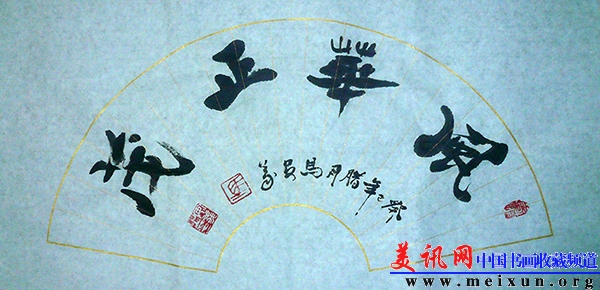 風華正茂
癸巳年腊月馬
美讯网 中国书画收藏频道
www.meixun.org